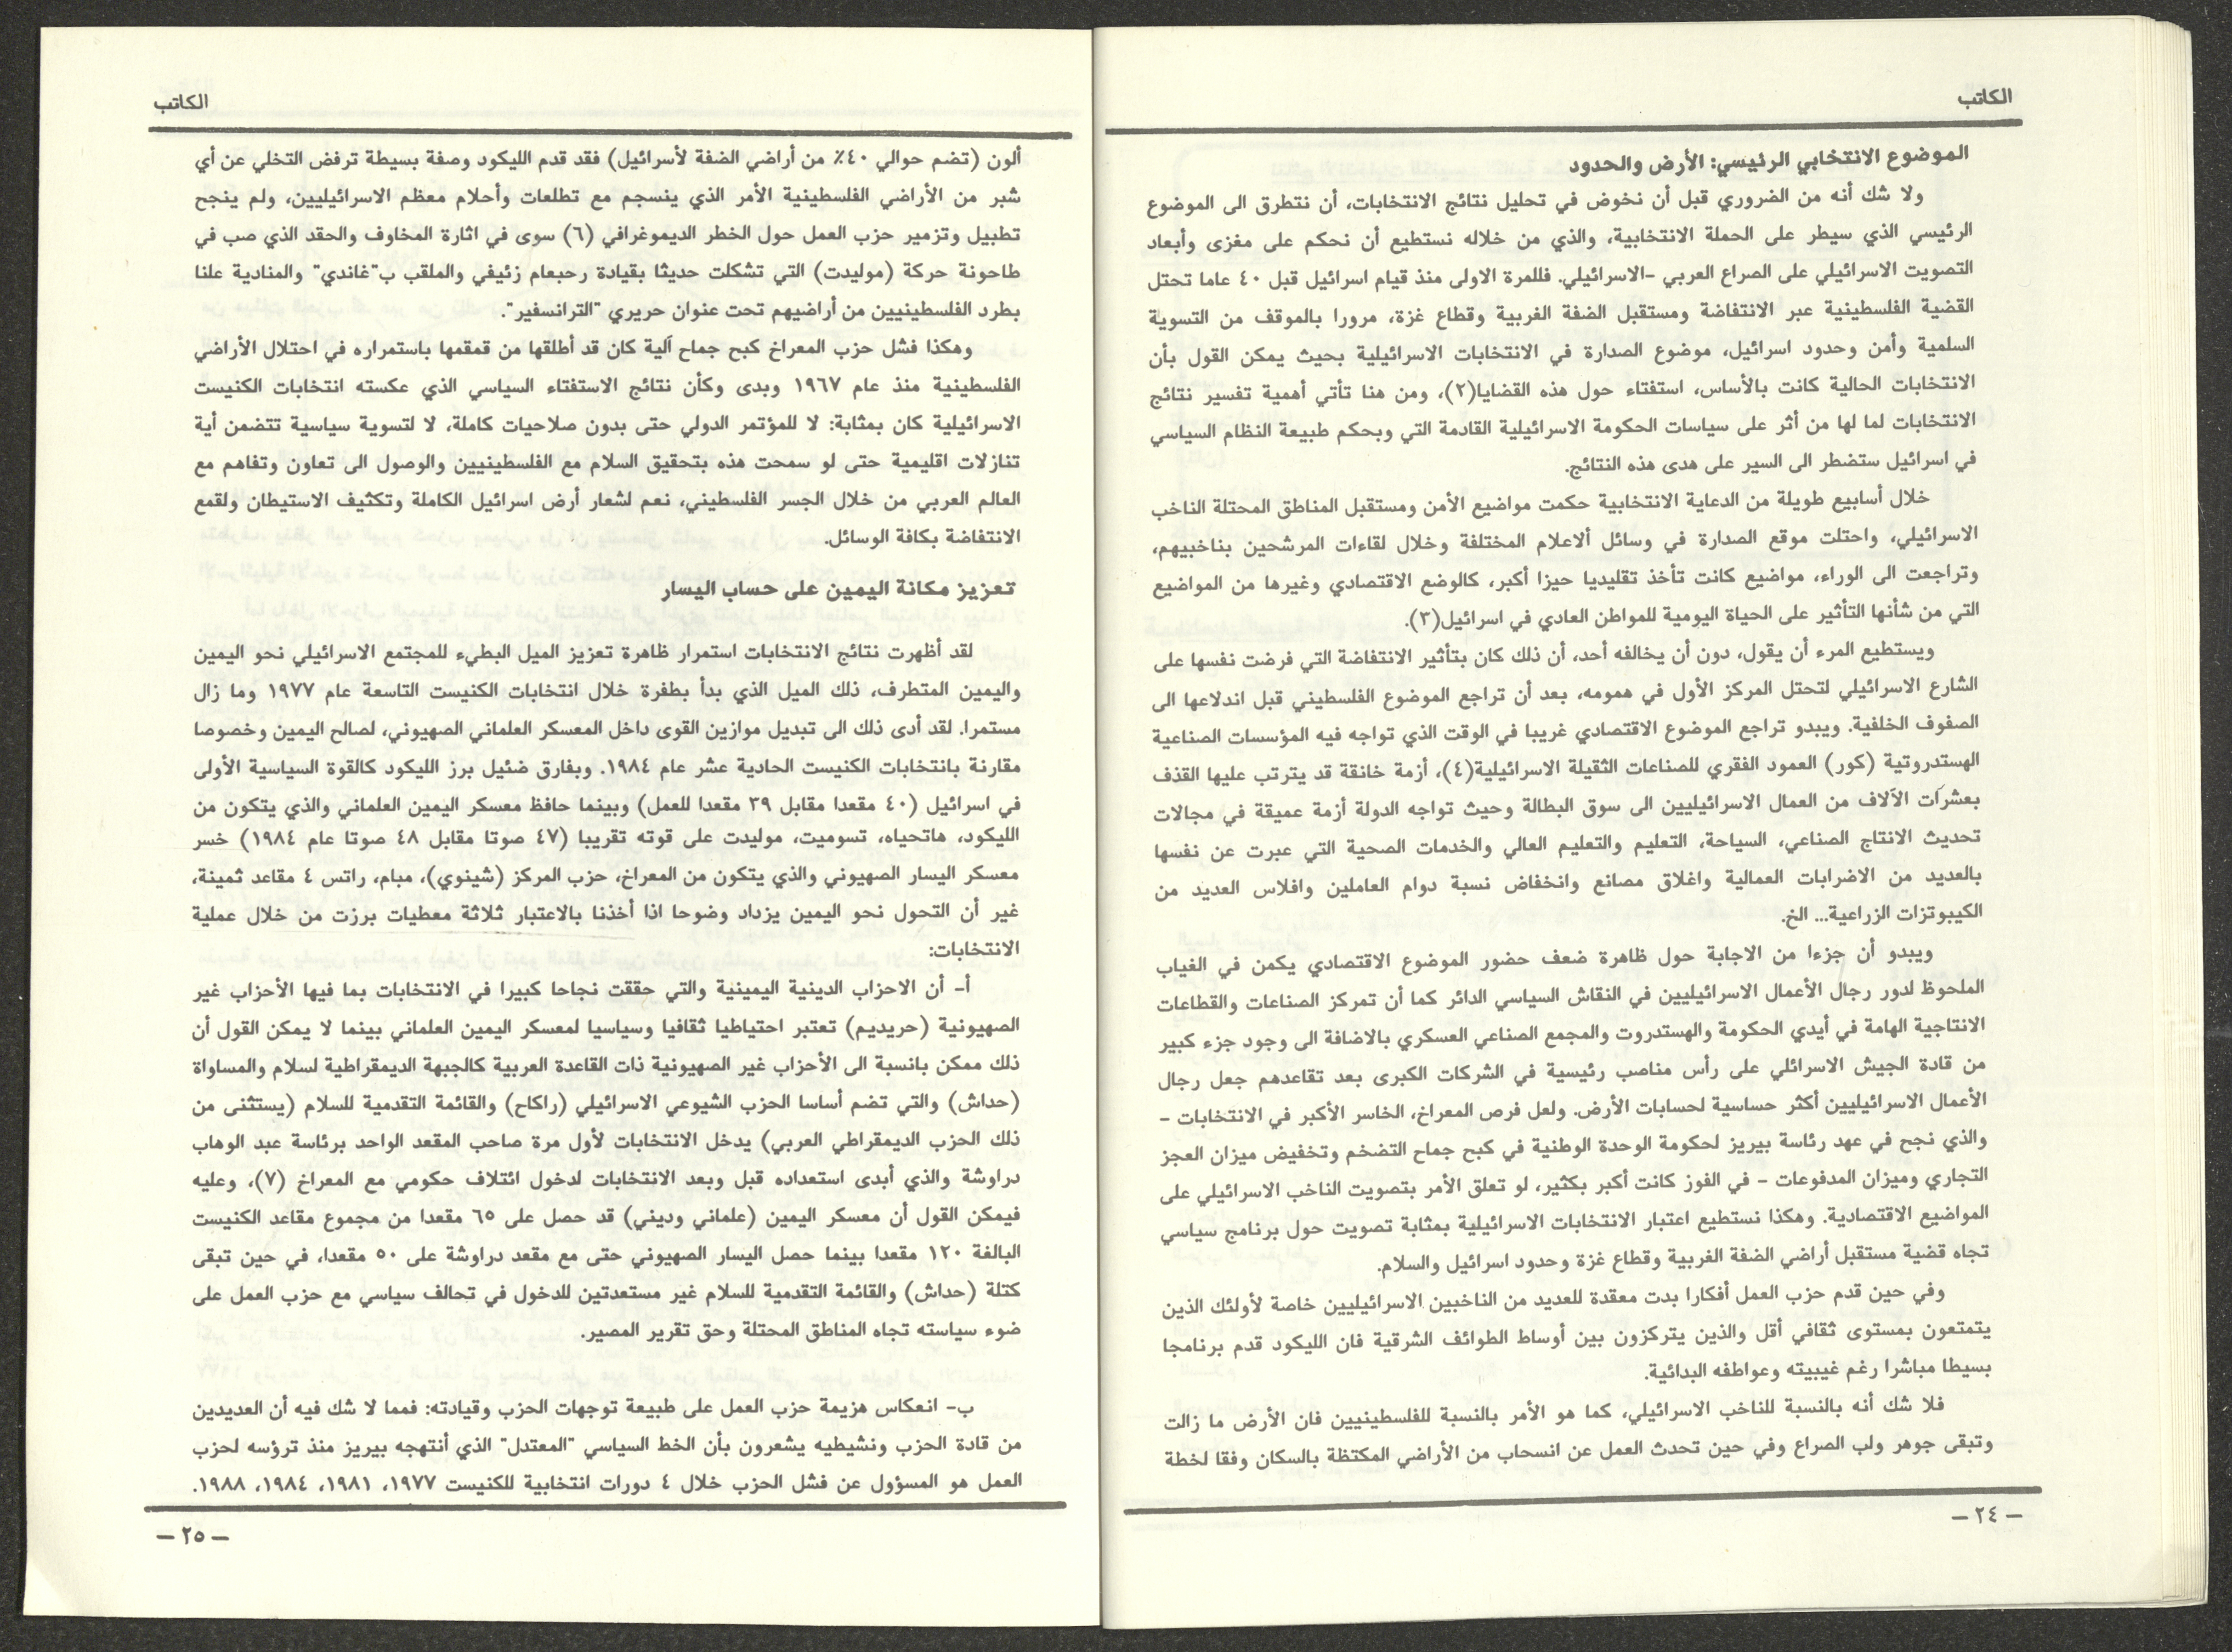 الكاتب
الموضوع الانتخابي الرئيسي: الأرض والحدود
ولا شك أنه من الضروري قبل أن نخوض في تحليل نتائج الانتخابات، أن نتطرق الى الموضوع
الرئيسي الذي سيطر على الحملة الانتخابية، والذي من خلاله نستطيع أن نحكم على مغزى وأبعاد
التصويت الاسرائيلي على الصراع العربي -الاسرائيلي. فللمرة الاولى منذ قيام اسرائيل قبل ٤٠ عاما تحتل
القضية الفلسطينية عبر الانتفاضة ومستقبل الضفة الغربية وقطاع غزة، مرورا بالموقف من التسوية
السلمية وأمن وحدود اسرائيل، موضوع الصدارة في الانتخابات الاسرائيلية بحيث يمكن القول بأن
الانتخابات الحالية كانت بالأساس، استفتاء حول هذه القضايا(٢)، ومن هنا تأتي أهمية تفسير نتائج
الانتخابات لما لها من أثر على سياسات الحكومة الاسرائيلية القادمة التي وبحكم طبيعة النظام السياسي
في اسرائيل ستضطر الى السير على هدى هذه النتائج.
خلال أسابيع طويلة من الدعاية الانتخابية حكمت مواضيع الأمن ومستقبل المناطق المحتلة الناخب
الاسرائيلي، واحتلت موقع الصدارة في وسائل ألاعلام المختلفة وخلال لقاءات المرشحين بناخبيهم،
وتراجعت الى الوراء، مواضيع كانت تأخذ تقليديا حيزا أكبر، كالوضع الاقتصادي وغيرها من المواضيع
التي من شأنها التأثير على الحياة اليومية للمواطن العادي في اسرائيل(٣).
ويستطيع المرء أن يقول، دون أن يخالفه أحد، أن ذلك كان بتأثير الانتفاضة التي فرضت نفسها على
الشارع الاسرائيلي لتحتل المركز الأول في همومه، بعد أن تراجع الموضوع الفلسطيني قبل اندلاعها الى
الصفوف الخلفية. ويبدو تراجع الموضوع الاقتصادي غريبا في الوقت الذي تواجه فيه المؤسسات الصناعية
الهستدروتية (كور) العمود الفقري للصناعات الثقيلة الاسرائيلية(٤)، أزمة خانقة قد يترتب عليها القذف
بعشرآت الآلاف من العمال الاسرائيليين الى سوق البطالة وحيث تواجه الدولة أزمة عميقة في مجالات
تحديث الانتاج الصناعي، السياحة، التعليم والتعليم العالي والخدمات الصحية التي عبرت عن نفسها
بالعديد من الاضرابات العمالية واغلاق مصانع وانخفاض نسبة دوام العاملين وافلاس العديد من
الكيبوتزات الزراعية... الخ.
ويبدو أن جزءا من الاجابة حول ظاهرة ضعف حضور الموضوع الاقتصادي يكمن في الغياب
الملحوظ لدور رجال الأعمال الاسرائيليين في النقاش السياسي الدائر كما أن تمركز الصناعات والقطاعات
الانتاجية الهامة في أيدي الحكومة والهستدروت والمجمع الصناعي العسكري بالاضافة الى وجود جزء كبير
من قادة الجيش الاسرائلي على رأس مناصب رئيسية في الشركات الكبرى بعد تقاعدهم جعل رجال
الأعمال الاسرائيليين أكثر حساسية لحسابات الأرض. ولعل فرص المعراخ، الخاسر الأكبر في الانتخابات -
والذي نجح في عهد رئاسة بيريز لحكومة الوحدة الوطنية في كبح جماح التضخم وتخفيض ميزان العجز
التجاري وميزان المدفوعات - في الفوز كانت أكبر بكثير، لو تعلق الأمر بتصويت الناخب الاسرائيلي على
المواضيع الاقتصادية. وهكذا نستطيع اعتبار الانتخابات الاسرائيلية بمثابة تصويت حول برنامج سياسي
تجاه قضية مستقبل أراضي الضفة الغربية وقطاع غزة وحدود اسرائيل والسلام.
وفي حين قدم حزب العمل أفكارا بدت معقدة للعديد من الناخبين الاسرائيليين خاصة لأولئك الذين
يتمتعون بمستوى ثقافي أقل والذين يتركزون بين أوساط الطوائف الشرقية فان الليكود قدم برنامجا
بسيطا مباشرا رغم غيبيته وعواطفه البدائية.
فلا شك أنه بالنسبة للناخب الاسرائيلي، كما هو الأمر بالنسبة للفلسطينيين فان الأرض ما زالت
وتبقى جوهر ولب الصراع وفي حين تحدث العمل عن انسحاب من الأراضي المكتظة بالسكان وفقا لخطة
— ٢٤ —
الكاتب
ألون (تضم حوالي ٤٠٪ من أراضي الضفة لأسرائيل) فقد قدم الليكود وصفة بسيطة ترفض التخلي عن أي
شبر من الأراضي الفلسطينية الأمر الذي ينسجم مع تطلعات وأحلام معظم الاسرائيليين، ولم ينجح
تطبيل وتزمير حزب العمل حول الخطر الديموغرافي (٦) سوى في اثارة المخاوف والحقد الذي صب في
طاحونة حركة (موليدت) التي تشكلت حديثا بقيادة رحبعام زئيفي والملقب ب"غاندي" والمنادية علنا
بطرد الفلسطينيين من أراضيهم تحت عنوان حريري "الترانسفير".
وهكذا فشل حزب المعراخ كبح جماح آلية كان قد أطلقها من قمقمها باستمراره في احتلال الأراضي
الفلسطينية منذ عام ١٩٦٧ وبدى وكأن نتائج الاستفتاء السياسي الذي عكسته انتخابات الكنيست
الاسرائيلية كان بمثابة: لا للمؤتمر الدولي حتى بدون صلاحيات كاملة، لا لتسوية سياسية تتضمن أية
تنازلات اقليمية حتى لو سمحت هذه بتحقيق السلام مع الفلسطينيين والوصول الى تعاون وتفاهم مع
العالم العربي من خلال الجسر الفلسطيني، نعم لشعار أرض اسرائيل الكاملة وتكثيف الاستيطان ولقمع
الانتفاضة بكافة الوسائل.
تعزيز مكانة اليمين على حساب اليسار
لقد أظهرت نتائج الانتخابات استمرار ظاهرة تعزيز الميل البطيء للمجتمع الاسرائيلي نحو اليمين
واليمين المتطرف، ذلك الميل الذي بدأ بطفرة خلال انتخابات الكنيست التاسعة عام ١٩٧٧ وما زال
مستمرا. لقد أدى ذلك الى تبديل موازين القوى داخل المعسكر العلماني الصهيوني، لصالح اليمين وخصوصا
مقارنة بانتخابات الكنيست الحادية عشر عام ١٩٨٤. وبفارق ضئيل برز الليكود كالقوة السياسية الأولى
في اسرائيل (٤٠ مقعدا مقابل ٣٩ مقعدا للعمل) وبينما حافظ معسكر اليمين العلماني والذي يتكون من
الليكود، هاتحياه، تسوميت، موليدت على قوته تقريبا (٤٧ صوتا مقابل ٤٨ صوتا عام ١٩٨٤) خسر
معسكر اليسار الصهيوني والذي يتكون من المعراخ، حزب المركز (شينوي)، مبام، راتس ٤ مقاعد ثمينة،
غير أن التحول نحو اليمين يزداد وضوحا اذا أخذنا بالاعتبار ثلاثة معطيات برزت من خلال عملية
الانتخابات:
أ- أن الاحزاب الدينية اليمينية والتي حققت نجاحا كبيرا في الانتخابات بما فيها الأحزاب غير
الصهيونية (حريديم) تعتبر احتياطيا ثقافيا وسياسيا لمعسكر اليمين العلماني بينما لا يمكن القول أن
ذلك ممكن بانسبة الى الأحزاب غير الصهيونية ذات القاعدة العربية كالجبهة الديمقراطية لسلام والمساواة
(حداش) والتي تضم أساسا الحزب الشيوعي الاسرائيلي (راكاح) والقائمة التقدمية للسلام (يستثنى من
ذلك الحزب الديمقراطي العربي) يدخل الانتخابات لأول مرة صاحب المقعد الواحد برئاسة عبد الوهاب
دراوشة والذي أبدى استعداده قبل وبعد الانتخابات لدخول ائتلاف حكومي مع المعراخ (٧)، وعليه
فيمكن القول أن معسكر اليمين (علماني وديني) قد حصل على ٦٥ مقعدا من مجموع مقاعد الكنيست
البالغة ١٢٠ مقعدا بينما حصل اليسار الصهيوني حتى مع مقعد دراوشة على ٥٠ مقعدا، في حين تبقى
كتلة (حداش) والقائمة التقدمية للسلام غير مستعدتين للدخول في تحالف سياسي مع حزب العمل على
ضوء سياسته تجاه المناطق المحتلة وحق تقرير المصير.
ب- انعكاس هزيمة حزب العمل على طبيعة توجهات الحزب وقيادته: فمما لا شك فيه أن العديدين
من قادة الحزب ونشيطيه يشعرون بأن الخط السياسي "المعتدل" الذي أنتهجه بيريز منذ ترؤسه لحزب
العمل هو المسؤول عن فشل الحزب خلال ٤ دورات انتخابية للكنيست ١٩٧٧، ١٩٨١، ١٩٨٤، ١٩٨٨.
— ٢٥ —